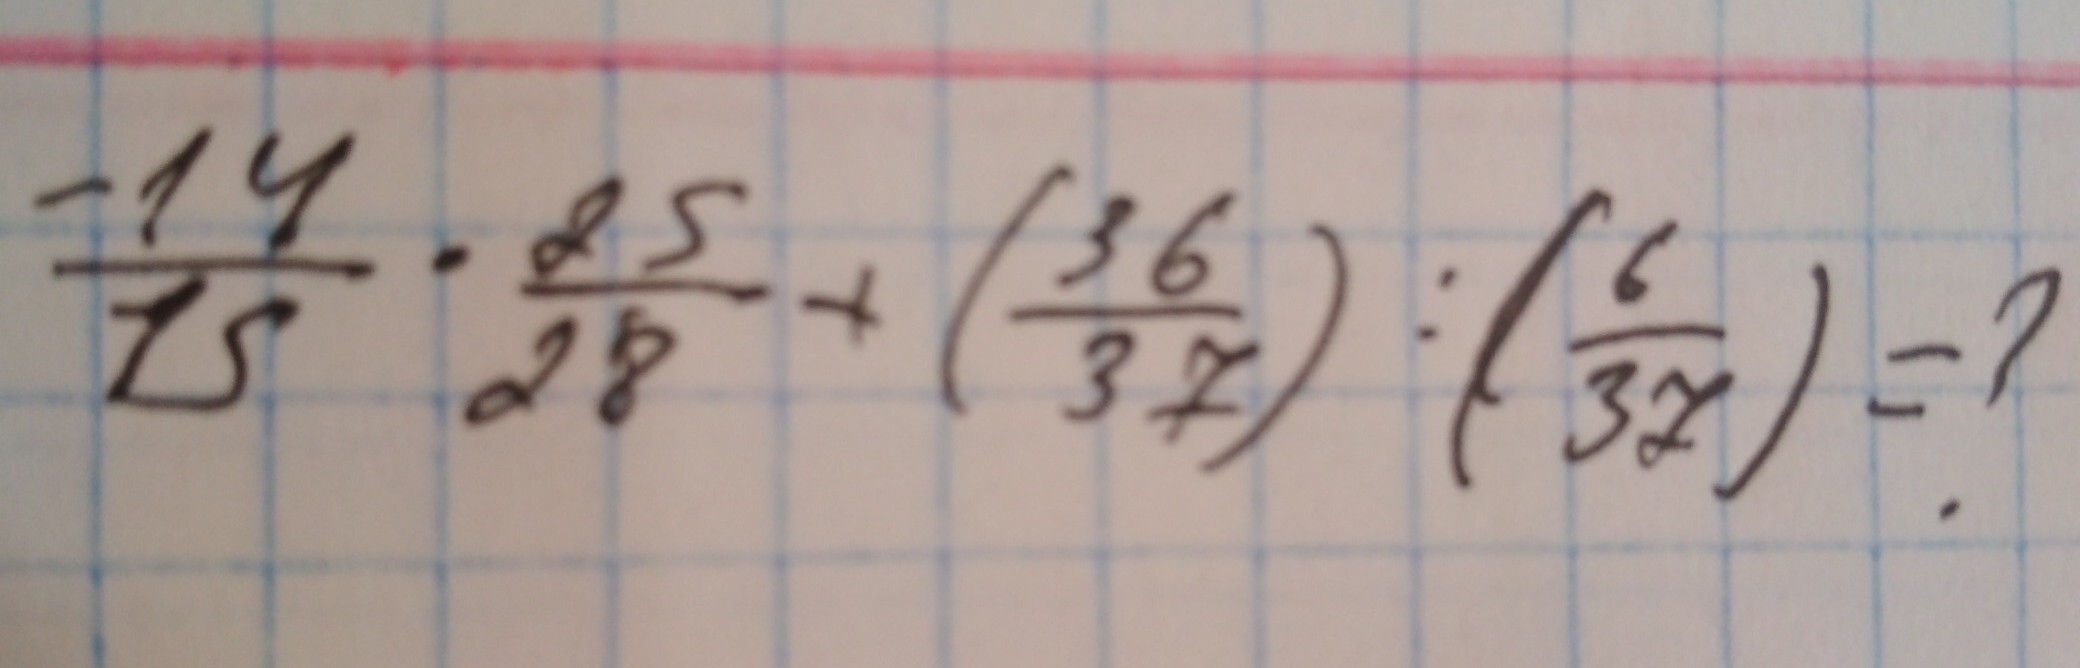 -14/15 · 25/28 + (36/37) : (6/37) = ?